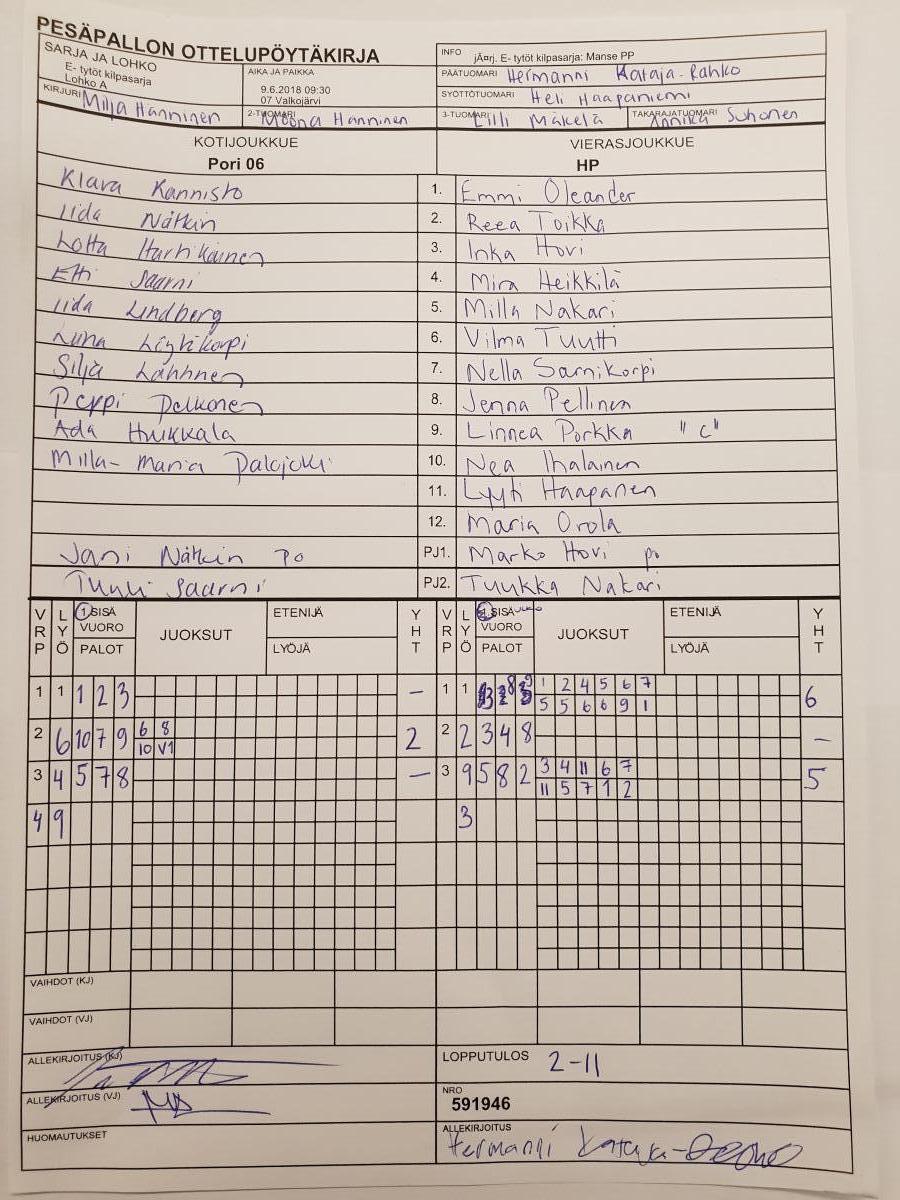 PESÄPALLON OTTELUPÖYTÄKIRJA
SARJA JA LOHKO
E- tytöt kilpasarja
Lohko A
AIKA JA PAIKKA
9.6.2018 09:30
07 Valkojärvi
INFO jÃ¤rj. E- tytöt kilpasarja: Manse PP
PÄÄTUOMARI Hermanni Kataja-Rahko
SYÖTTÖTUOMARI Heli Haapaniemi
KIRJURI Milja Hänninen
2-TUOMARI Moona Hänninen
3-TUOMARI Lilli Mäkelä
TAKARAJATUOMARI Annika Suhonen
KOTIJOUKKUE VIERASJOUKKUE
Pori 06 HP
Klara Kannisto 1. Emmi Oleander
Iida Nätkin 2. Reea Toikka
Lotta Hartikainen 3. Inka Hovi
Etti Saarni 4. Mira Heikkilä
Iida Lindberg 5. Milla Nakari
Luna Löytikorpi 6. Vilma Tuutti
Silja 7. Nella Sarnikorpi
Peppi Pelkonen 8. Jenna Pellinen
Ada Huikkala 9. Linnea Porkka "C"
Milla-Maria Palojoki 10. Nea Ihalainen
11. Lyyti Haapanen
12. Maria Orola
Jani Nätkin PJ1. Marko Hovi po
Tuuli Saarni PJ2. Tuukka Nakari
VRP LYÖ 1 SISÄ VUORO PALOT JUOKSUT ETENIJÄ LYÖJÄ YHT VRP LYÖ SISÄ VUORO PALOT JUOKSUT ETENIJÄ LYÖJÄ YHT
1 1 1 2 3 – 1 1 1 2 4 5 6 7 6
5 5 6 6 9 1
2 6 10 7 9 6 8 2 2 2 3 4 8 –
10 V1
3 4 5 7 8 – 3 9 5 8 2 3 4 11 6 7 5
11 5 7 1 2
4 9 3
VAIHDOT (KJ)
VAIHDOT (VJ)
ALLEKIRJOITUS (KJ)
LOPPUTULOS 2-11
ALLEKIRJOITUS (VJ)
NRO
591946
HUOMAUTUKSET
ALLEKIRJOITUS
Hermanni